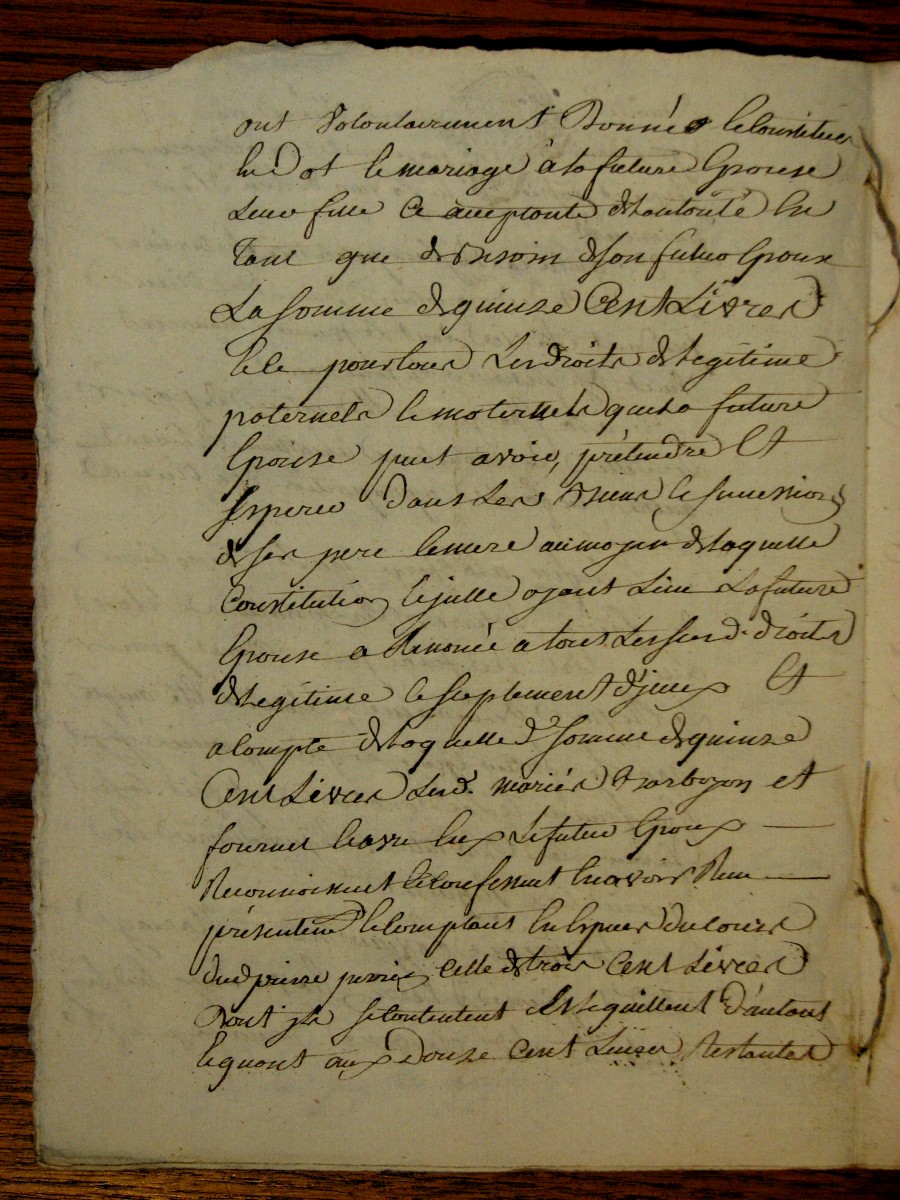 ont volontairement Donné et Constitué
En Dot et mariage a la future Epouse
Leur fille Ce acceptante de Lautorité En
Tant que de Besoin de son futur Epoux
La somme de quinze Cent Livres
Et ce pour tous Les droits de Legitime
paternels et maternels que la future
Epouse peut avoir, prétendre Et
Esperer Dans Les Biens et succession
de ses pere et mere au moyen de laquelle
Constitution Et ayant Lieu La future
Epouse a Renoncé a tous Lesd. droits
de Legitime et suplement d'jceux Et
a Compte de laquelle de somme de quinze
Cent Livres Lesd. mariés et
fournel Entre Eux Le futur Epoux
Reconnoissent Et Confessent En avoir Reçu
présentemt. Et Comptant En Especes du Cours
du prince Celle de trois Cent Livres
Dont jls se Contentent Et quittent D'autant
Et quant aux Douze Cent Livres Restantes